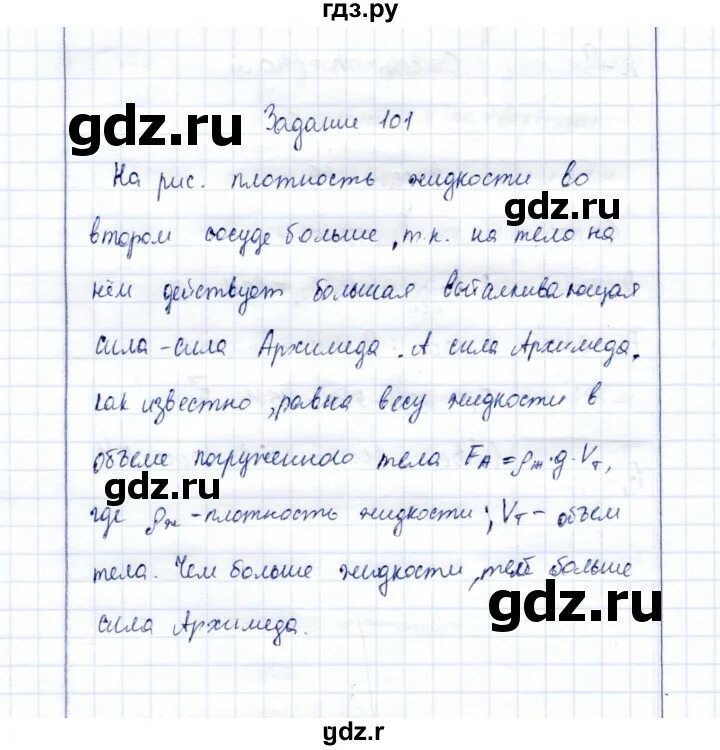 гдз.ру
gdz.ru
Задание 101
На рис. плотность жидкости во
gdz.ru
втором сосуде больше, т.к. на тело на
нём действует большая выталкивающая
сила - сила Архимеда. А сила Архимеда,
как известно, равна весу жидкости в
объеме погруженного тела Fᴀ = ρж · g · Vт,
gdz.ru
где ρж - плотность жидкости; Vт - объем
тела. Чем больше жидкости, тем больше
gdz.ru
сила Архимеда.
gdz.r